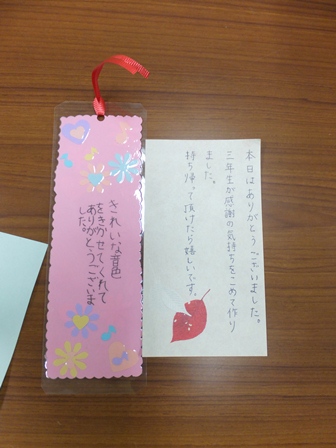 本日はありがとうございました。
三年生が感謝の気持ちをこめて作り
ました。
持ち帰って頂けたら嬉しいです。
きれいな音色
をきかせてくれて
ありがとうございま
した。